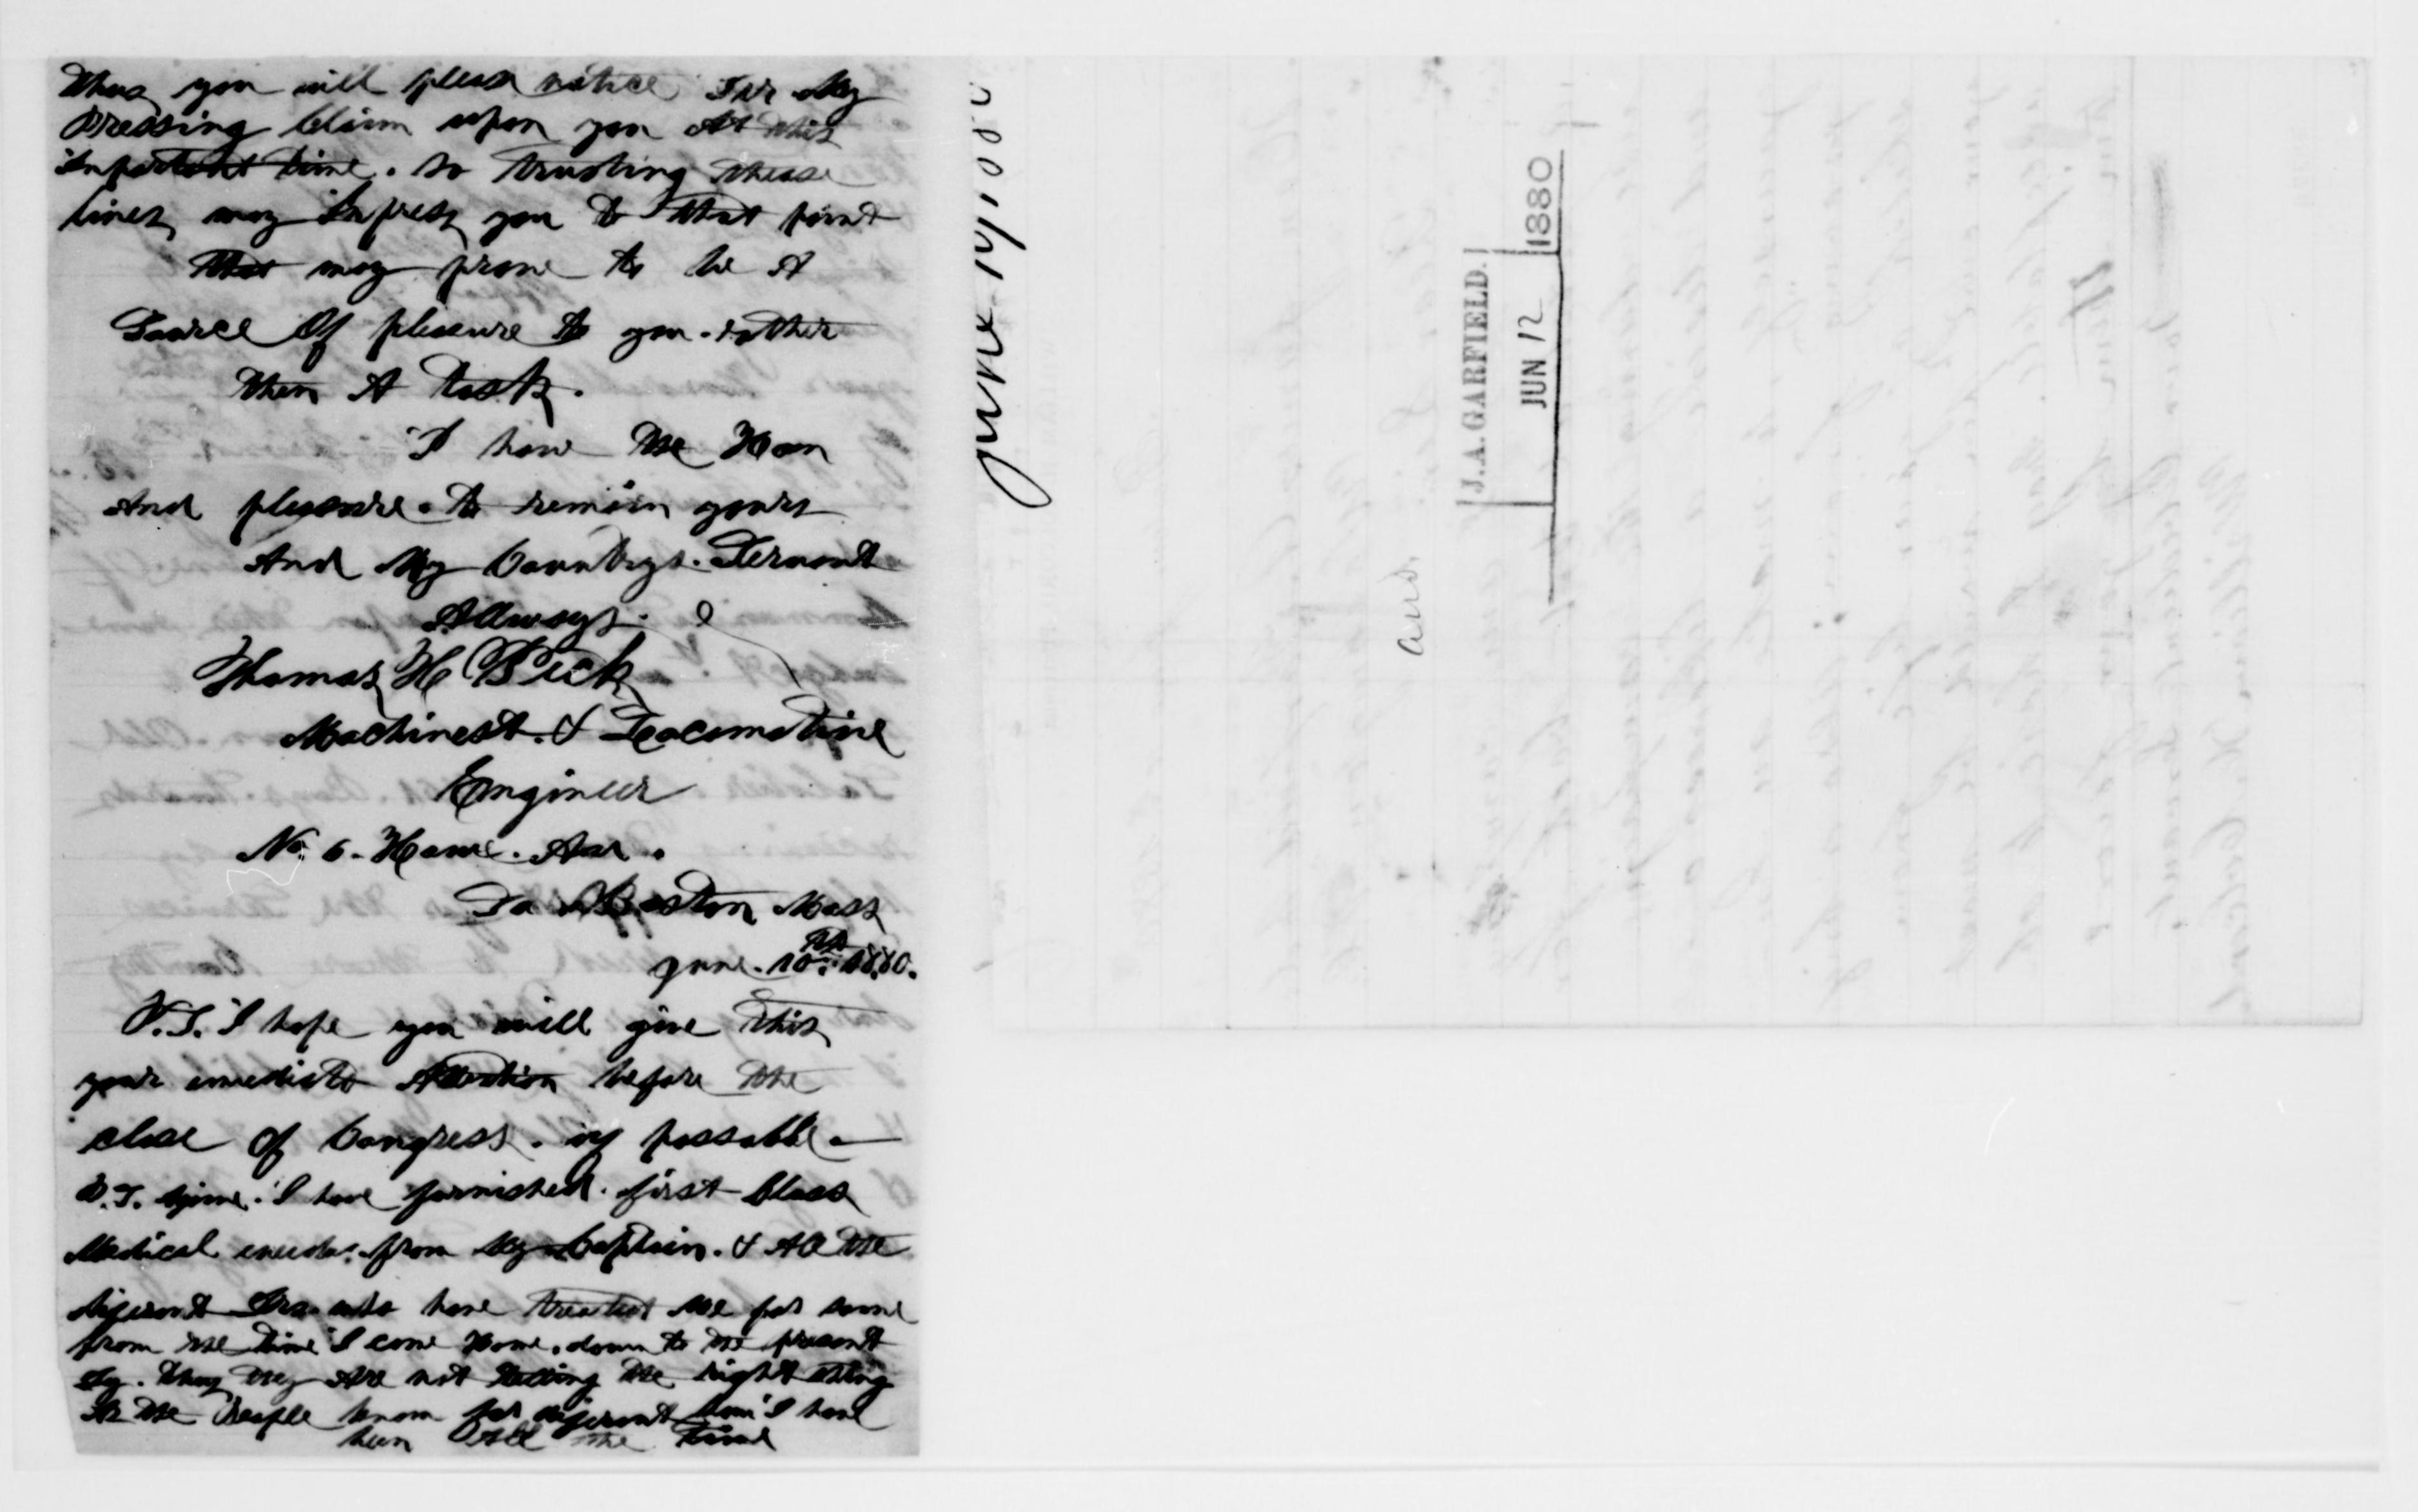 Thus you will please notice Sir My
Pressing Claim upon you At this
Important time. So trusting these
lines may Impress you to that point
That may prove to be A
Source Of pleasure to you. rather
then A task.
I have the Hon
And pleasure. to remain yours
And My Countrys. Servant
Allways.
Thomas H Peck
Machinest. & Locomotive
Engineer
No. 6. Home. Ave.
So Boston Mass
June. 10th. 1880.
P.S. I hope you will give this
your emediate Attention before the
close of Congress. if possable.
I have furnished. first Class
Medical from My Captain. & All the
diferent Drs. who have treated me for same
from the time I come Home. down to the present
they Are not the right thing
the People know for diferent I have
been All the time
June 14, 1880
J. A. GARFIELD.
JUN 12 1880
ans.